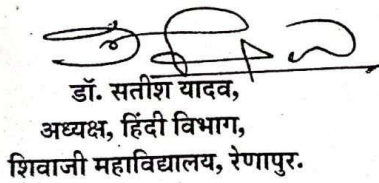 डॉ. सतीश यादव,
अध्यक्ष, हिंदी विभाग,
शिवाजी महाविद्यालय, रेणापुर.